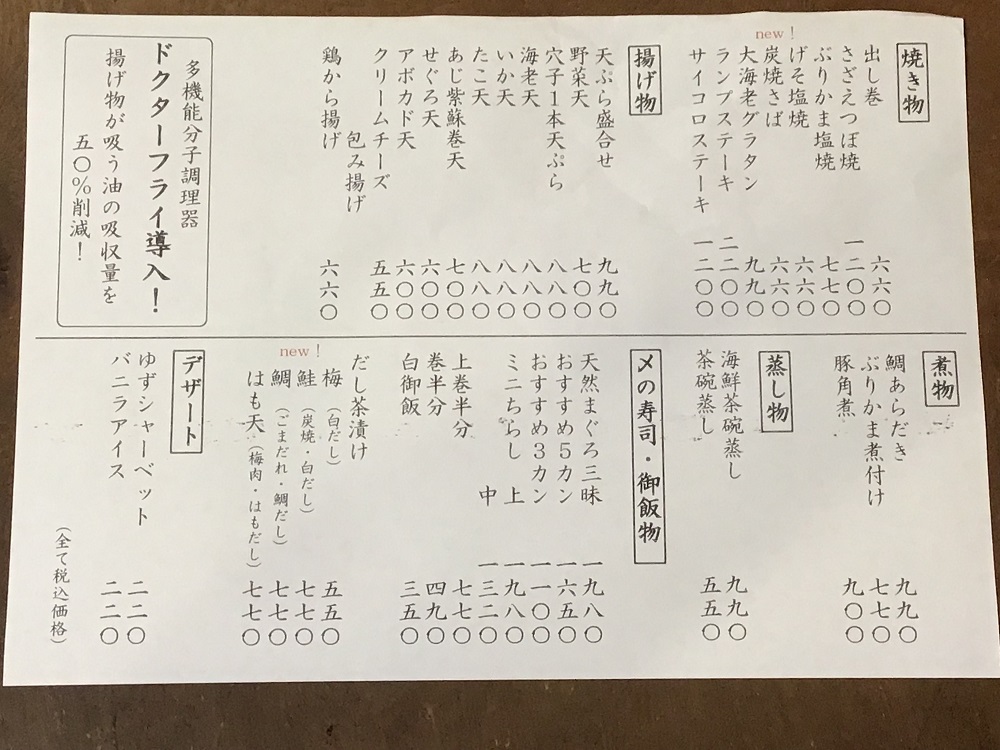 焼き物
出し巻 六六〇
さざえつぼ焼 一二〇〇
ぶりかま塩焼 七七〇
げそ塩焼 六六〇
new!
炭焼さば 六六〇
大海老グラタン 九九〇
ランプステーキ 二二〇〇
サイコロステーキ 一二〇〇
揚げ物
天ぷら盛合せ 九九〇
野菜天 七〇〇
穴子1本天ぷら 八八〇
海老天 八八〇
いか天 八八〇
たこ天 八八〇
あじ紫蘇巻天 七〇〇
せぐろ天 六〇〇
アボカド天 六〇〇
クリームチーズ 五五〇
包み揚げ
鶏から揚げ 六六〇
多機能分子調理器
ドクターフライ導入!
揚げ物が吸う油の吸収量を
五〇%削減!
煮物
鯛あらだき 九九〇
ぶりかま煮付け 七七〇
豚角煮 九〇〇
蒸し物
海鮮茶碗蒸し 九九〇
茶碗蒸し 五五〇
〆の寿司・御飯物
天然まぐろ三昧 一九八〇
おすすめ5カン 一六五〇
おすすめ3カン 一一〇〇
ミニちらし 上 一九八〇
中 一三二〇
上巻半分 七七〇
巻半分 四九〇
白御飯 三五〇
だし茶漬け
梅(白だし) 五五〇
new!
鮭(炭焼・白だし) 七七〇
鯛(ごまだれ・鯛だし) 七七〇
はも天(梅肉・はもだし) 七七〇
デザート
ゆずシャーベット 二二〇
バニラアイス 二二〇
(全て税込価格)